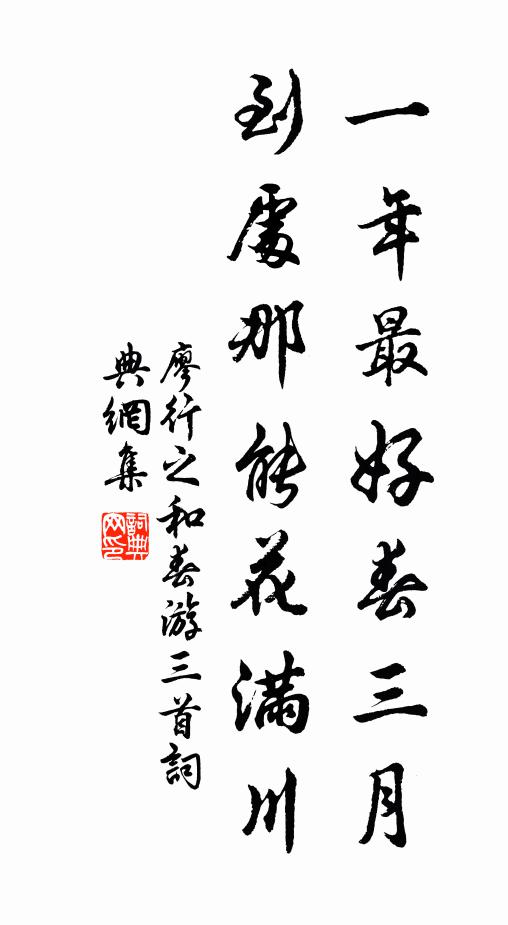 一年最好春三月
到處那能花滿川
廖行之和春游三首詞
典網集
詞典
网印